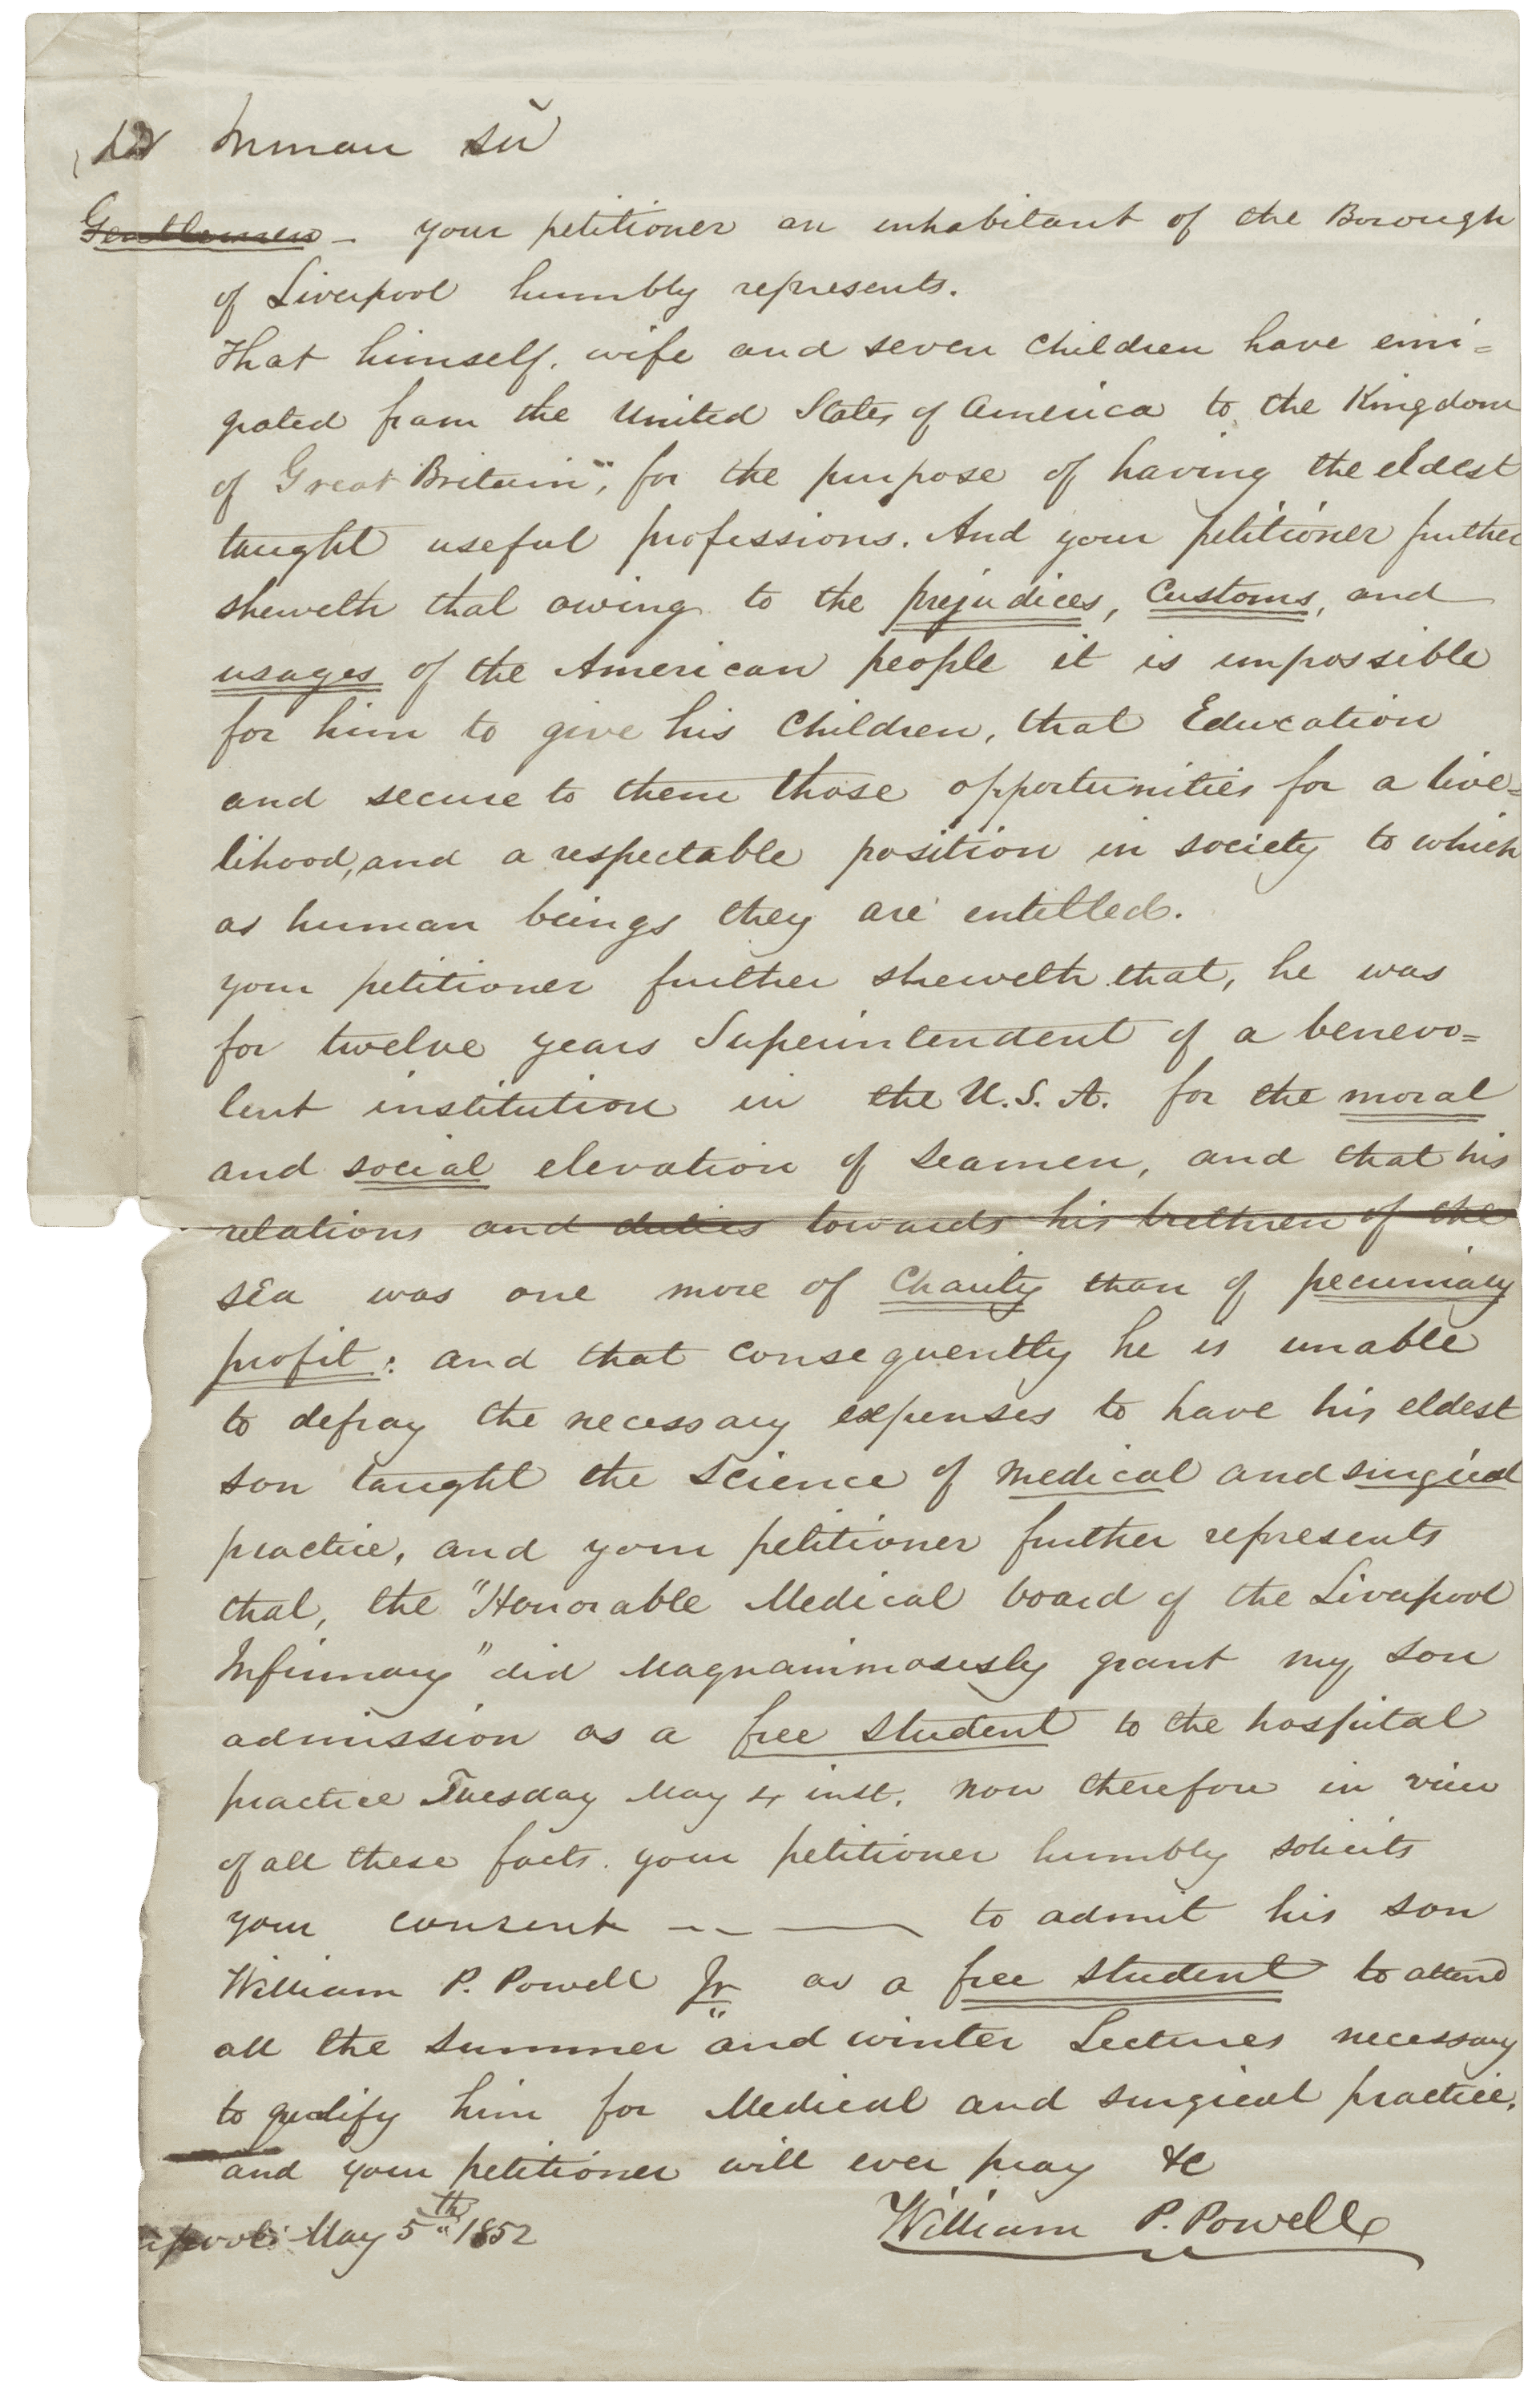 Dr Inman Sir
Gentlemen - your petitioner an inhabitant of the Borough
of Liverpool humbly represents.
That himself, wife and seven children have emi=
grated from the United States of America to the Kingdom
of Great Britain", for the purpose of having the eldest
taught useful professions. And your petitioner further
sheweth that owing to the prejudices, Customs, and
usages of the American people it is impossible
for him to give his Children, that Education
and secure to them those opportunities for a live=
lihood, and a respectable position in society to which
as human beings they are entitled.
your petitioner further sheweth that, he was
for twelve years Superintendent of a benevo=
lent institution in the U.S.A. for the moral
and social elevation of Seamen, and that his
relations and duties towards his brethren of the
sea was one more of Charity than of pecuniary
profit: and that consequently he is unable
to defray the necessary expenses to have his eldest
son taught the Science of Medical and surgical
practice, and your petitioner further represents
that, the "Honorable Medical board of the Liverpool
Infirmary" did Magnanimosisly grant my son
admission as a free student to the hospital
practice Tuesday May 4 inst. now therefore in view
of all these facts. your petitioner humbly solicits
your consent -- — to admit his son
William P. Powell Jr as a free student to attend
all the Summer and winter Lectures necessary
to qualify him for Medical and surgical practice.
and your petitioner will ever pray &c
May 5th 1852 William P. Powell